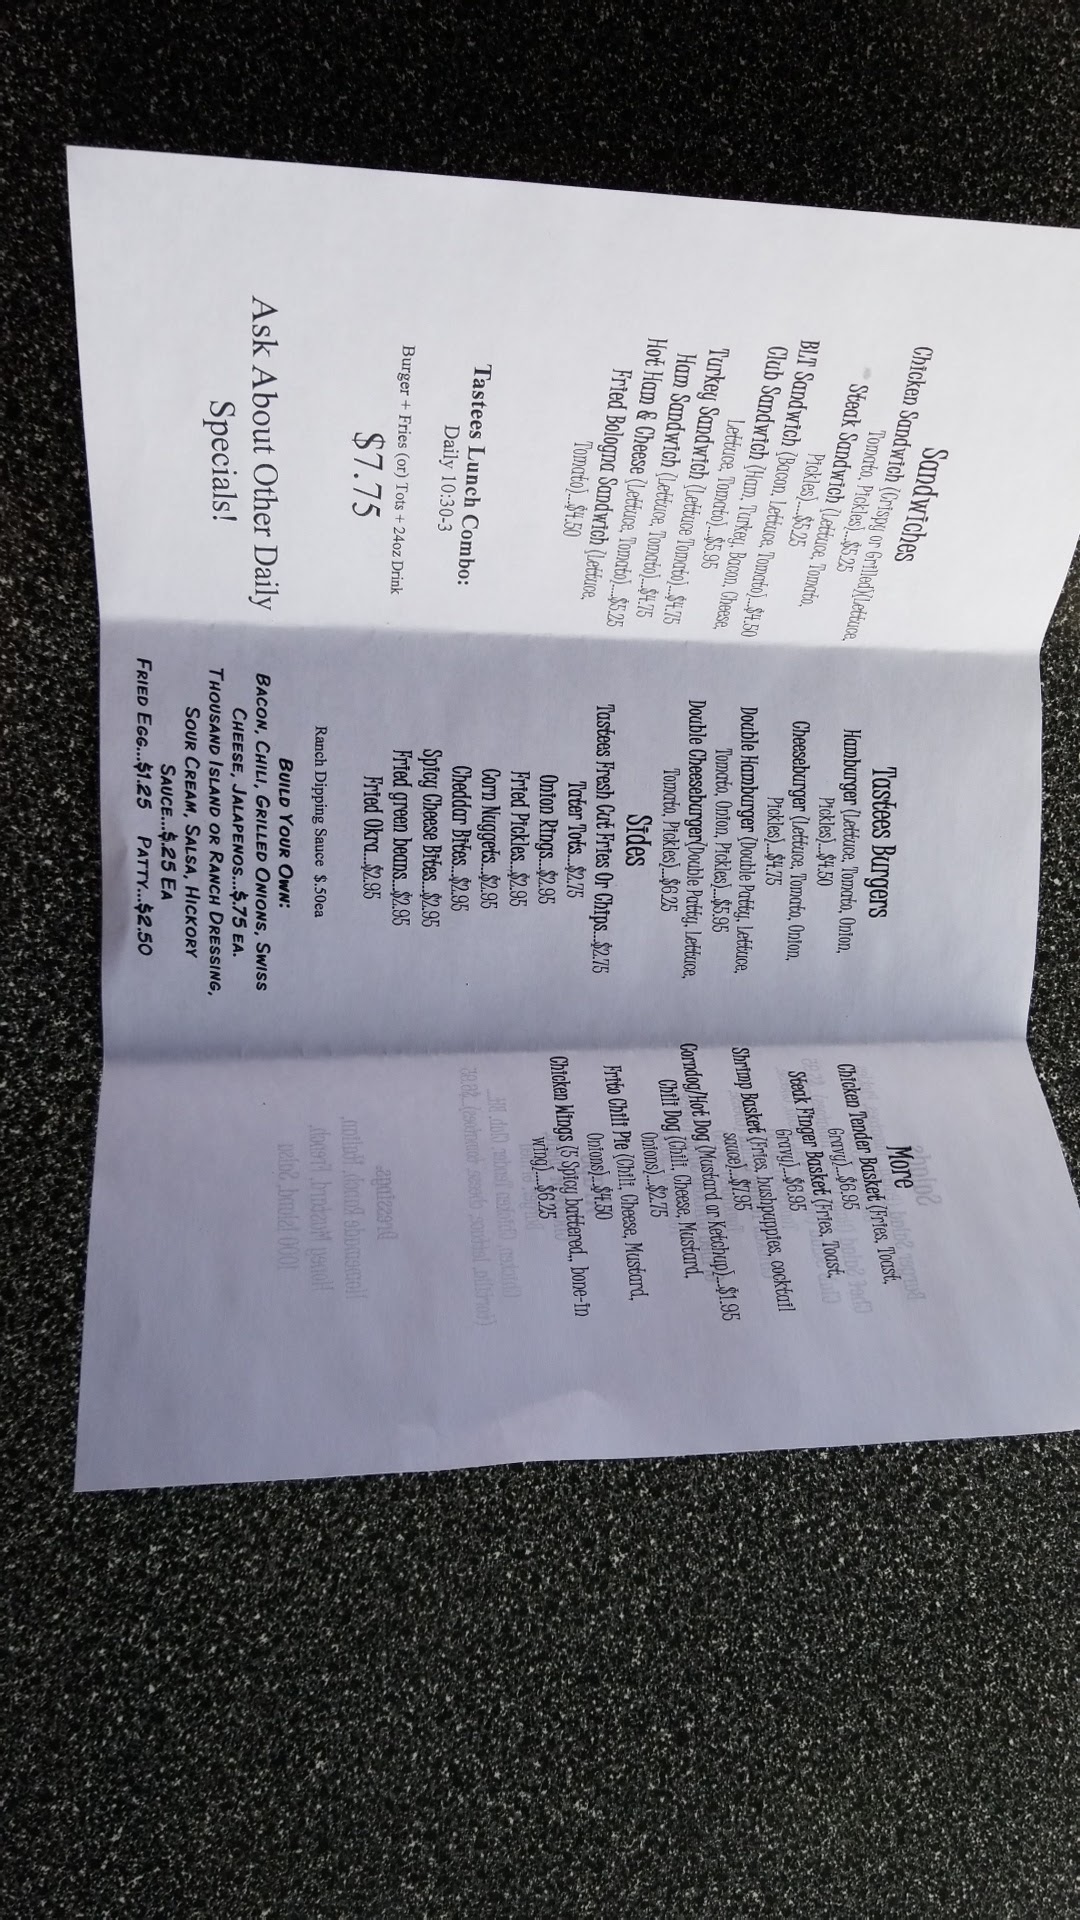 Sandwiches
Chicken Sandwich (Crispy or Grilled)(Lettuce,
Tomato, Pickles)...$5.25
Steak Sandwich (Lettuce, Tomato,
Pickles)...$5.25
BLT Sandwich (Bacon, Lettuce, Tomato)...$4.50
Club Sandwich (Ham, Turkey, Bacon, Cheese,
Lettuce, Tomato)...$5.95
Turkey Sandwich (Lettuce Tomato)...$4.75
Ham Sandwich (Lettuce, Tomato)...$4.75
Hot Ham & Cheese (Lettuce, Tomato)...$5.25
Fried Bologna Sandwich (Lettuce,
Tomato)...$4.50
Tastees Lunch Combo:
Daily 10:30-3
Burger + Fries (or) Tots + 24oz Drink
$7.75
Ask About Other Daily
Specials!
Tastees Burgers
Hamburger (Lettuce, Tomato, Onion,
Pickles)...$4.50
Cheeseburger (Lettuce, Tomato, Onion,
Pickles)...$4.75
Double Hamburger (Double Patty, Lettuce,
Tomato, Onion, Pickles)...$5.95
Double Cheeseburger(Double Patty, Lettuce,
Tomato, Pickles)...$6.25
Sides
Tastees Fresh Cut Fries Or Chips...$2.75
Tater Tots...$2.75
Onion Rings...$2.95
Fried Pickles...$2.95
Corn Nuggets...$2.95
Cheddar Bites...$2.95
Spicy Cheese Bites...$2.95
Fried green beans...$2.95
Fried Okra...$2.95
Ranch Dipping Sauce $.50ea
BUILD YOUR OWN:
BACON, CHILI, GRILLED ONIONS, SWISS
CHEESE, JALAPENOS...$.75 EA.
THOUSAND ISLAND OR RANCH DRESSING,
SOUR CREAM, SALSA, HICKORY
SAUCE...$.25 EA
FRIED EGG...$1.25 PATTY...$2.50
More
Chicken Tender Basket (Fries, Toast,
Gravy)...$6.95
Steak Finger Basket (Fries, Toast,
Gravy)...$6.95
Shrimp Basket (Fries, hushpuppies, cocktail
sauce)...$7.95
Corndog/Hot Dog (Mustard or Ketchup)...$1.95
Chili Dog (Chili, Cheese, Mustard,
Onions)...$2.75
Frito Chili Pie (Chili, Cheese, Mustard,
Onions)...$4.50
Chicken Wings (5 Spicy battered,, bone-in
wing)...$6.25